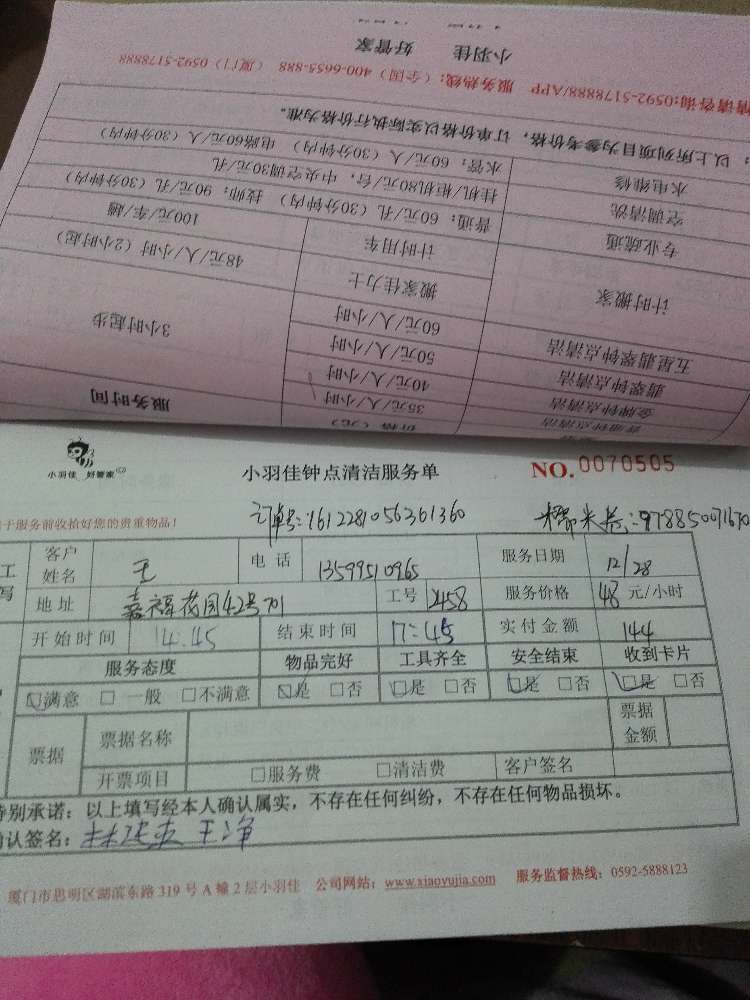 小羽佳 好管家
情请咨询:0592-5178888/APP 服务热线:（全国）400-6655-888 （厦门）0592-5178888
：以上所列项目为参考价格，订单价格以实际执行价格为准。
水电维修 水管：60元/人（30分钟内） 电路60元/人（30分钟内）
空调清洗 挂机/柜机80元/台，中央空调30元/孔
专业疏通 普通：60元/孔（30分钟内） 技师：90元/孔（30分钟内）
计时搬家 计时用车 100元/车/趟
搬家佳力士 48元/人/小时（2小时起）
五星翡翠钟点清洁 60元/人/小时 3小时起步
翡翠钟点清洁 50元/人/小时
金牌钟点清洁 40元/人/小时
普通钟点清洁 35元/人/小时
价格（元） 服务时间
小羽佳 好管家
小羽佳钟点清洁服务单 NO.0070505
于服务前收拾好您的贵重物品！
订单号:1612281056361360
:978850071670
工 客户姓名 王 电话 13599510965 服务日期 12/28
写 地址 嘉福花园42号701 工号 2458 服务价格 48 元/小时
开始时间 14:45 结束时间 17:45 实付金额 144
服务态度 物品完好 工具齐全 安全结束 收到卡片
☑满意 □ 一般 □不满意 ☑是 □否 ☑是 □否 ☑是 □否 ☑是 □否
票据 票据名称 票据金额
开票项目 □服务费 □清洁费 客户签名
特别承诺：以上填写经本人确认属实，不存在任何纠纷，不存在任何物品损坏。
确认签名：
厦门市思明区湖滨东路319号A幢2层小羽佳 公司网站：www.xiaoyujia.com 服务监督热线：0592-5888123